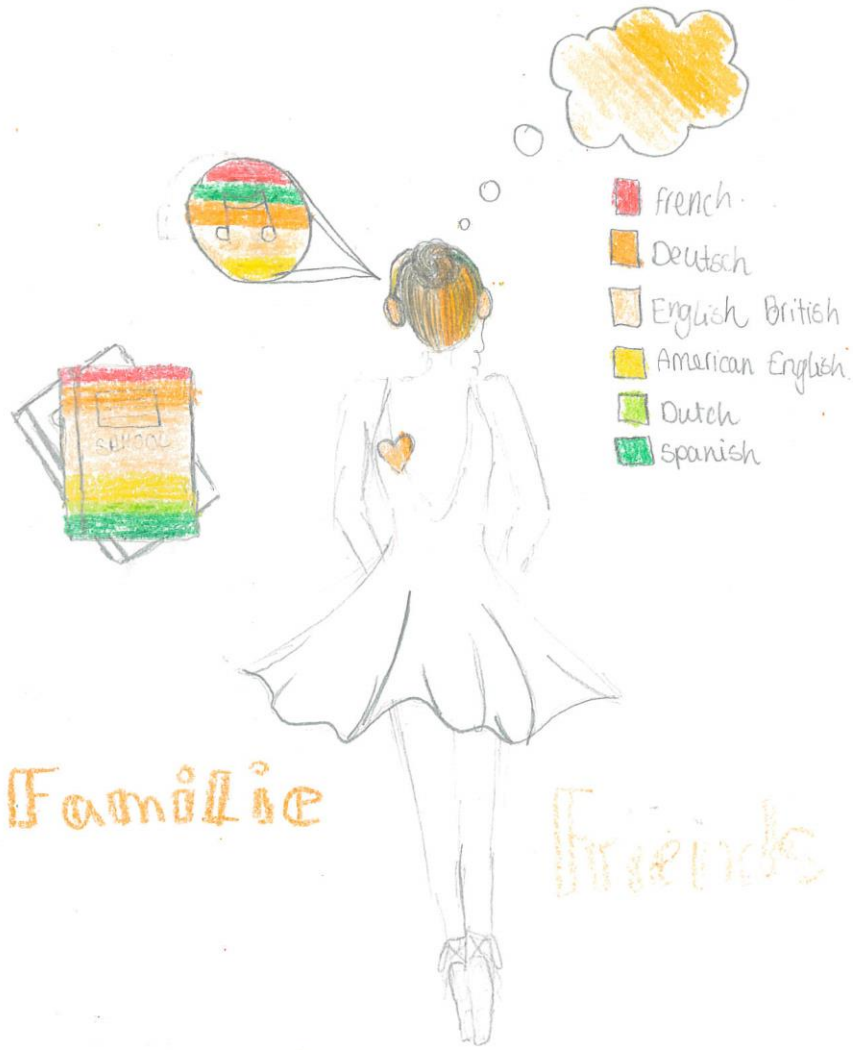 french.
Deutsch
English British
American English.
Dutch
spanish
SCHOOL
Familie
Friends